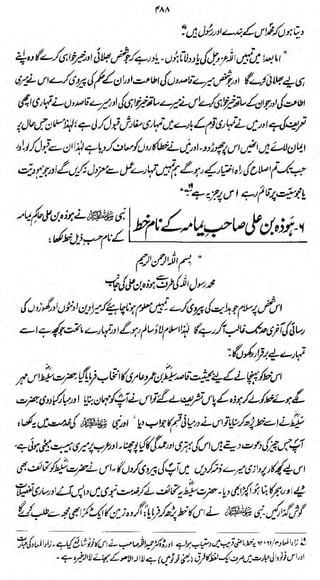 ۴۸۸
دیتا ہوں کہ محمد اس کے بندے اور رسول ہیں۔"
"اما بعد! میں تمہیں اللہ عزوجل کی یاد دلاتا ہوں۔ یاد رہے کہ جو شخص بھلائی اور خیر خواہی کرے گا وہ اپنے
ہی لیے بھلائی کرے گا اور جو شخص میرے قاصدوں کی اطاعت اور ان کے حکم کی پیروی کرے اس نے میری
اطاعت کی اور جو ان کے ساتھ خیر خواہی کرے اس نے میرے ساتھ خیر خواہی کی اور میرے قاصدوں نے تمہاری اچھی
تعریف کی ہے اور میں نے تمہاری قوم کے بارے میں تمہاری سفارش قبول کر لی ہے، لہٰذا مسلمان جس حال پر
ایمان لائے ہیں انھیں اس پر چھوڑ دو۔ اور میں نے خطا کاروں کو معاف کر دیا ہے لہٰذا ان سے قبول کر لو، اور
جب تک تم اصلاح کی راہ اختیار کیے رہو گے ہم تمہیں تمہارے عمل سے معزول نہ کریں گے اور جو یہودیت
یا مجوسیت پر قائم رہے اس پر جزیہ ہے"
۶۔ ہوذہ بن علی صاحبِ یمامہ کے نام خط
نبی ﷺ نے ہوذہ بن علی حاکم یمامہ
کے نام حسب ذیل خط لکھا:
"بسم اللہ الرحمن الرحیم
محمد رسول اللہ کی طرف سے ہوذہ بن علی کی جانب
اس شخص پر سلام جو ہدایت کی پیروی کرے۔ تمہیں معلوم ہونا چاہیے کہ میرا دین اونٹوں اور گھوڑوں کی
رسائی کی آخری حد تک غالب آ کر رہے گا لہٰذا اسلام لاؤ سالم رہو گے اور تمہارے ماتحت جو کچھ ہے اسے
تمہارے لیے برقرار رکھوں گا"
اس خط کو پہنچانے کے لیے بحیثیت قاصد سلیط بن عمرو عامری کا انتخاب فرمایا گیا۔ حضرت سلیط اس مہر
لگے ہوئے خط کو لے کر ہوذہ کے پاس تشریف لے گئے تو اس نے آپ کو مہمان بنایا اور مبارکباد دی۔ حضرت
سلیط نے اسے خط پڑھ کر سنایا تو اس نے درمیانی قسم کا جواب دیا اور نبی ﷺ کی خدمت میں یہ لکھا:
آپ جس چیز کی دعوت دیتے ہیں اس کی بہتری اور عمدگی کا کیا پوچھنا۔ اور عرب پر میری ہیبت بیٹھی ہوئی ہے،
اس لیے کچھ کار پردازی میرے ذمہ کر دیں میں آپ کی پیروی کروں گا۔ اس نے حضرت سلیط کو تحائف بھی
دیے اور ہجر کا بنا ہوا کپڑا بھی دیا۔ حضرت سلیط یہ تحائف لے کر خدمتِ نبوی میں واپس آئے اور ساری تفصیلات
گوش گذار کیں۔ نبی ﷺ نے اس کا خط پڑھ کر فرمایا، اگر وہ زمین کا ایک ٹکڑا بھی مجھ سے طلب کرے گا